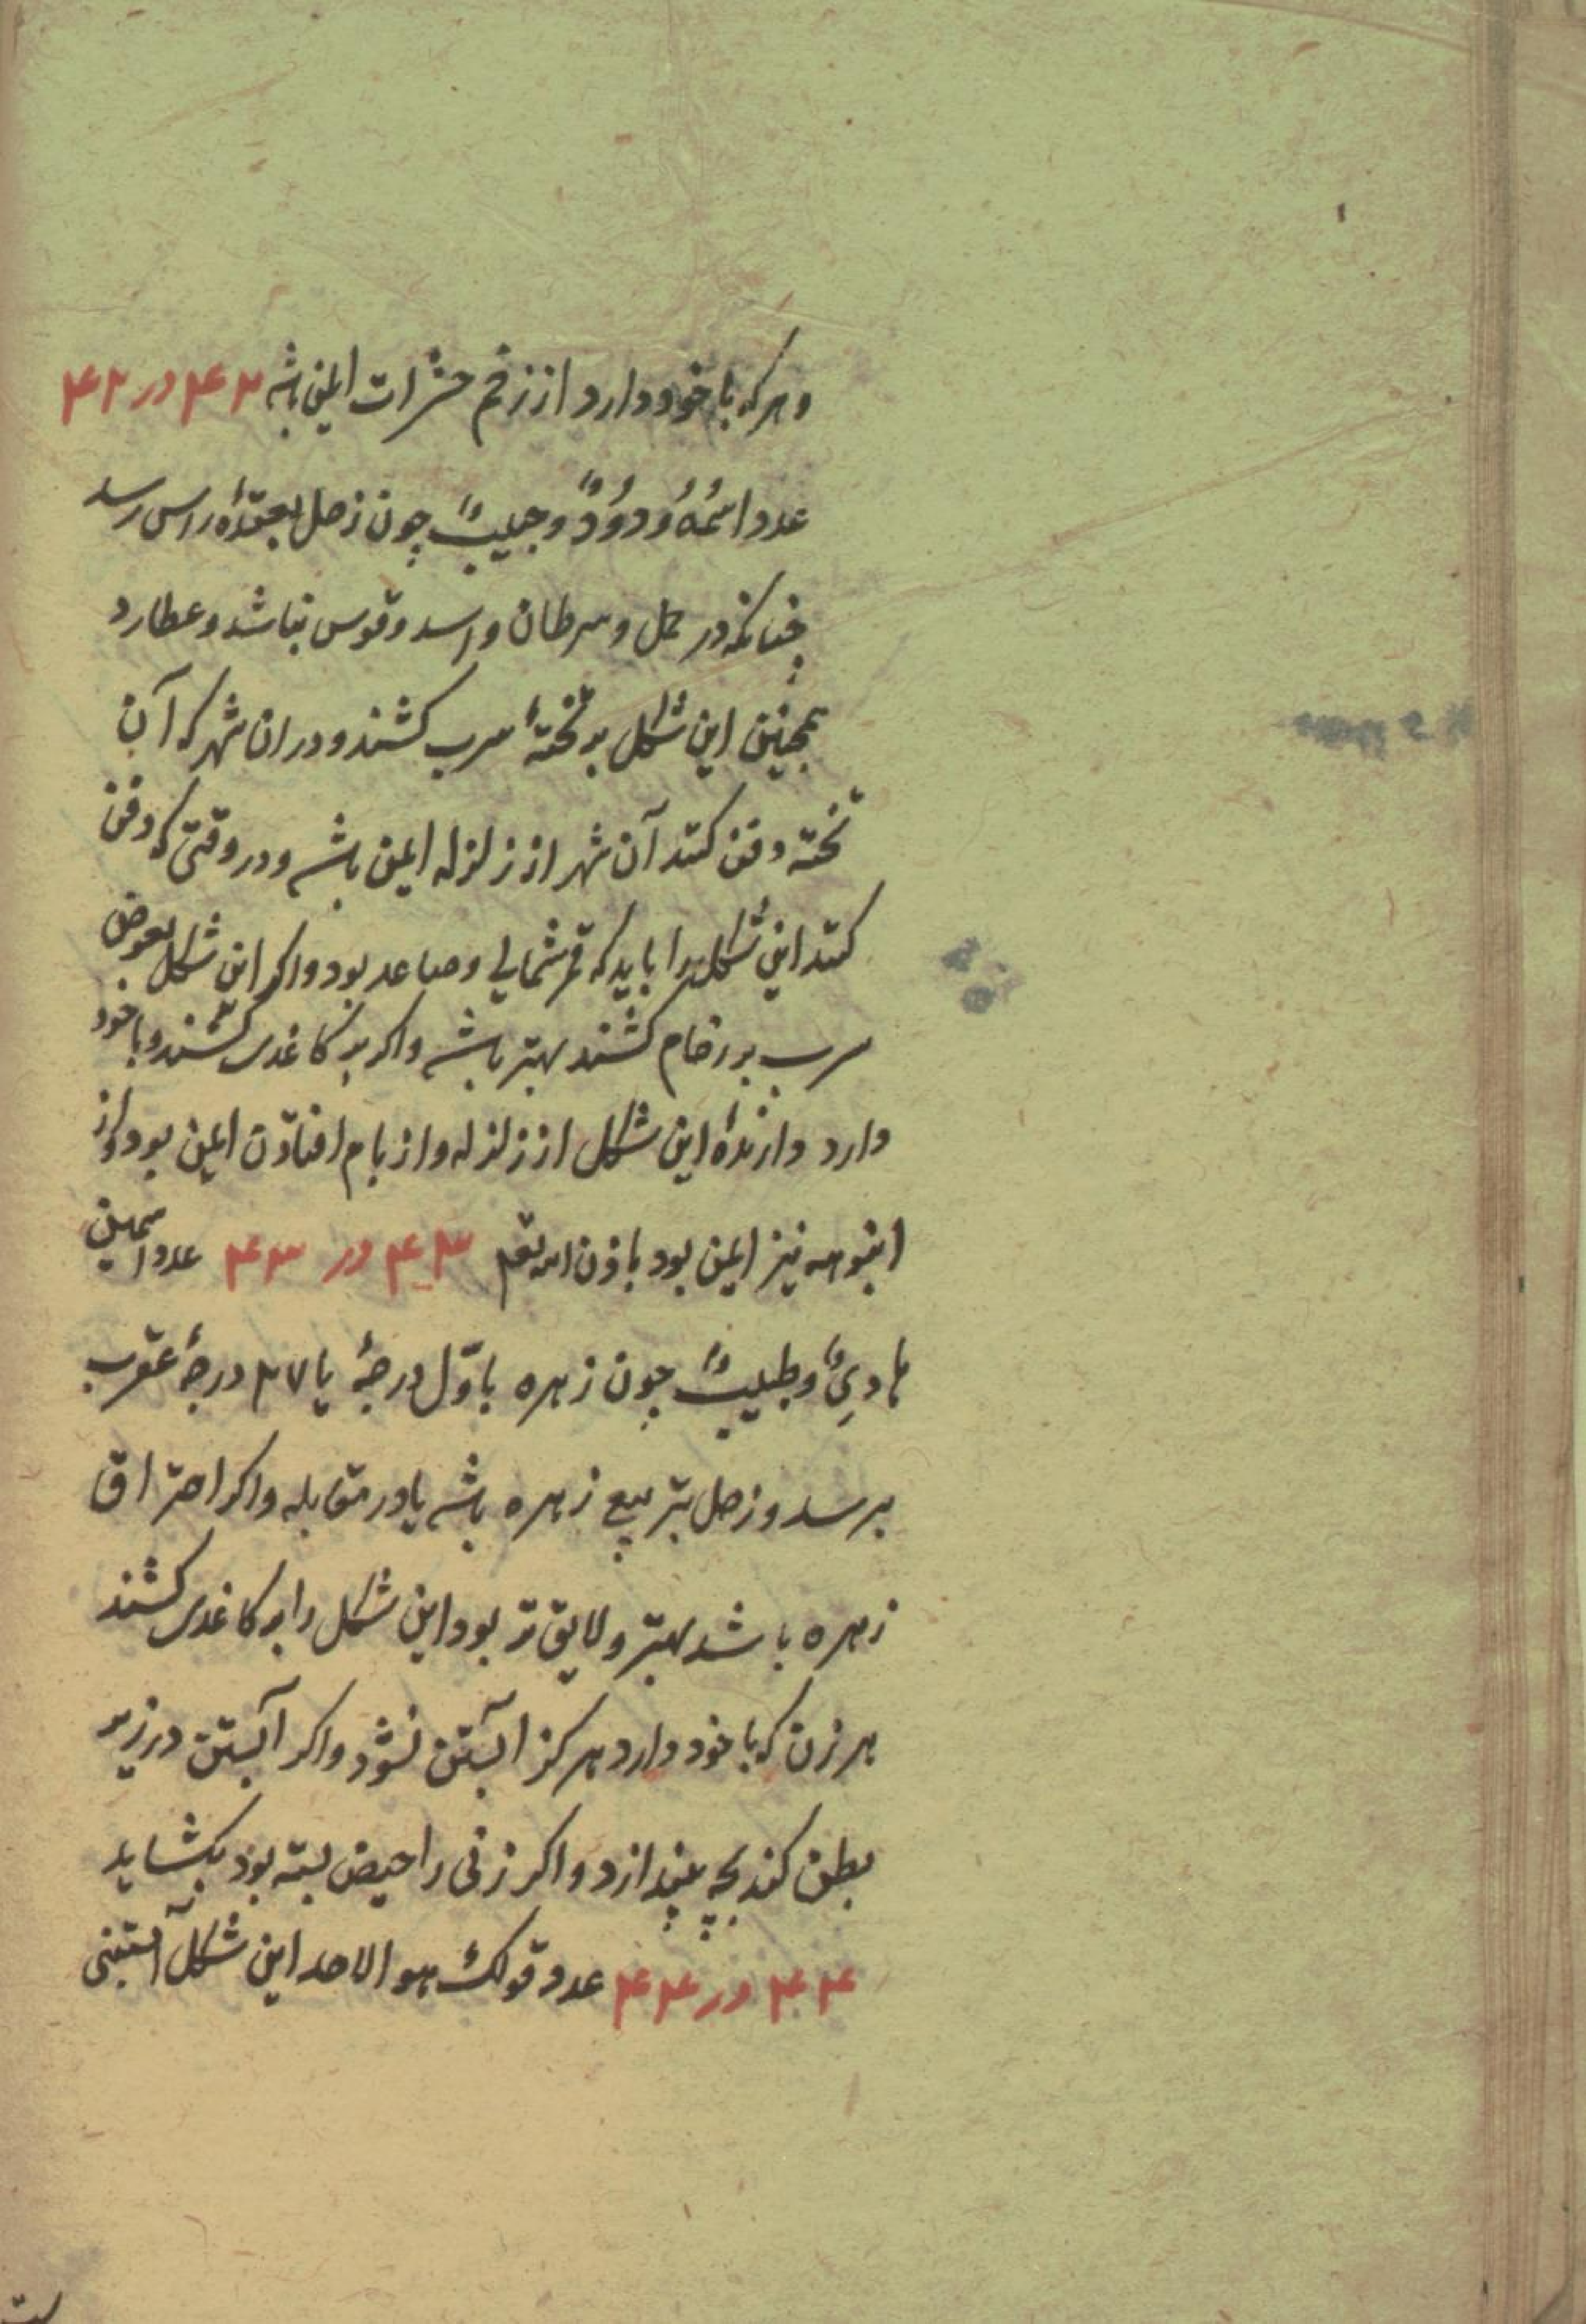 وهرکه با خود دارد از زخم حشرات ایمن باشد ۴۲ در ۴۲
عدد اسمُهُ وَدوُدٌ وجیلیبٌ چون زحل بعقدهٔ راس رسد
چنانکه در حمل و سرطان و اسد و قوس نباشد و عطارد
همچنین این شکل بر تختهٔ سرب کشند و دران شهر که آن
تخته دفن کنند آن شهر از زلزله ایمن باشد و در وقتی که دفن
کنند این شکل را باید که قمر شمالی و صاعد بود و اکر این شکل بعوض
سرب بر رخام کشند بهتر باشد و اکر بر کاغذی کشند و با خود
دارد دارندهٔ این شکل از زلزله و از بام افتادن ایمن بود و از
انبوهه نیز ایمن بود باذن الله تعم ۴۳ در ۴۳ عدد اسمین
هادِیٌ وطبیبٌ چون زهره باوّل درجهٔ یا ۲۷ درجهٔ عقرب
برسد و زحل بتربیع زهره باشد یا در مقابله و اکر احتراق
زهره باشد بهتر و لایق تر بود این شکل را بر کاغذی کشند
هر زن که با خود دارد هرکز آبستن نشود و اکر آبستن در زیر
بطن کند بچه بیندازد و اکر زنی را حیض بسته بود بکشاید
۴۴ در ۴۴ عدد قولک هو الاحد این شکل آبستنی